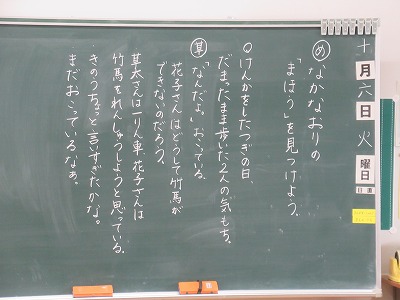 十月六日火曜日
日直
め なかなおりの
「まほう」を見つけよう。
○けんかをしたつぎの日、
だまったまま歩いた2人の気もち。
草「なんだよ。」おこっている。
花子さんはどうして竹馬が
できないのだろう。
草太さんは一りん車、花子さんは
竹馬をれんしゅうしようと思っている。
・きのうちょっと言いすぎたかな。
まだおこっているなぁ。